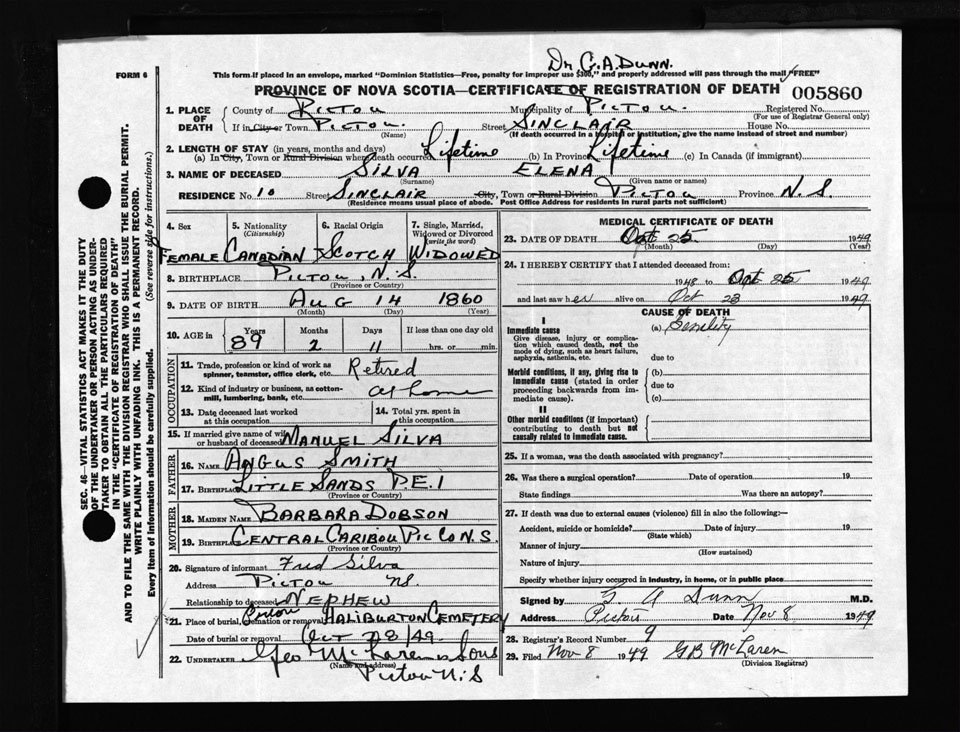 Dr G.A. DUNN.
FORM 6
This form if placed in an envelope, marked "Dominion Statistics—Free, penalty for improper use $300," and properly addressed will pass through the mail "FREE"
PROVINCE OF NOVA SCOTIA—CERTIFICATE OF REGISTRATION OF DEATH 005860
1. PLACE OF DEATH County of PICTOU Municipality of PICTOU. Registered No.
(For use of Registrar General only)
If in City or Town PICTOU. Street SINCLAIR House No.
(Name) (If death occurred in a hospital or institution, give the name instead of street and number)
2. LENGTH OF STAY (in years, months and days)
(a) In City, Town or Rural Division where death occurred Lifetime (b) In Province Lifetime (c) In Canada (if immigrant)
3. NAME OF DECEASED SILVA ELENA
(Surname) (Given name or names)
RESIDENCE No. 10 Street SINCLAIR City, Town or Rural Division PICTOU Province N.S.
(Residence means usual place of abode. Post Office Address for residents in rural parts not sufficient)
4. Sex 5. Nationality (Citizenship) 6. Racial Origin 7. Single, Married, Widowed or Divorced (write the word)
FEMALE CANADIAN SCOTCH WIDOWED
8. BIRTHPLACE PICTOU, N.S.
(Province or Country)
9. DATE OF BIRTH AUG 14 1860
(Month) (Day) (Year)
10. AGE in Years Months Days If less than one day old
89 2 11 hrs. or min.
OCCUPATION
11. Trade, profession or kind of work as spinner, teamster, office clerk, etc. Retired
12. Kind of industry or business, as cotton-mill, lumbering, bank, etc. at home
13. Date deceased last worked at this occupation
14. Total yrs. spent in this occupation
15. If married give name of wife or husband of deceased MANUEL SILVA
FATHER
16. NAME ANGUS SMITH
17. Birthplace LITTLE SANDS P.E.I
(Province or Country)
MOTHER
18. MAIDEN NAME BARBARA DOBSON
19. BIRTHPLACE CENTRAL CARIBOU PIC CO N.S.
(Province or Country)
20. Signature of informant Fred Silva
Address PICTOU NS.
Relationship to deceased NEPHEW
21. Place of burial, cremation or removal HALIBURTON CEMETERY
Date of burial or removal Oct 28/49.
22. UNDERTAKER Geo McLaren & Sons
(Name and address)
Pictou N.S
MEDICAL CERTIFICATE OF DEATH
23. DATE OF DEATH Oct 25 1949
(Month) (Day) (Year)
24. I HEREBY CERTIFY that I attended deceased from:
1948 to Oct 25 1949
and last saw her alive on Oct 23 1949
CAUSE OF DEATH
I
Immediate cause (a) Senility
Give disease, injury or complication which caused death, not the mode of dying, such as heart failure, asphyxia, asthenia, etc.
due to
Morbid conditions, if any, giving rise to immediate cause (stated in order proceeding backwards from immediate cause).
(b)
due to
(c)
II
Other morbid conditions (if important) contributing to death but not causally related to immediate cause.
25. If a woman, was the death associated with pregnancy?
26. Was there a surgical operation? Date of operation 19
State findings Was there an autopsy?
27. If death was due to external causes (violence) fill in also the following:—
Accident, suicide or homicide? Date of injury 19
(State which)
Manner of injury
(How sustained)
Nature of injury
Specify whether injury occurred in industry, in home, or in public place
Signed by G A Dunn M.D.
Pictou Date Nov 8 1949
28. Registrar's Record Number 9
29. Filed Nov 8 1949 GB McLaren
(Division Registrar)
SEC. 46—VITAL STATISTICS ACT MAKES IT THE DUTY
OF THE UNDERTAKER OR PERSON ACTING AS UNDERTAKER TO OBTAIN ALL THE PARTICULARS REQUIRED
IN THE "CERTIFICATE OF REGISTRATION OF DEATH"
AND TO FILE THE SAME WITH THE DIVISION REGISTRAR WHO SHALL ISSUE THE BURIAL PERMIT.
WRITE PLAINLY WITH UNFADING INK. THIS IS A PERMANENT RECORD.
Every item of information should be carefully supplied. (See reverse side for instructions.)